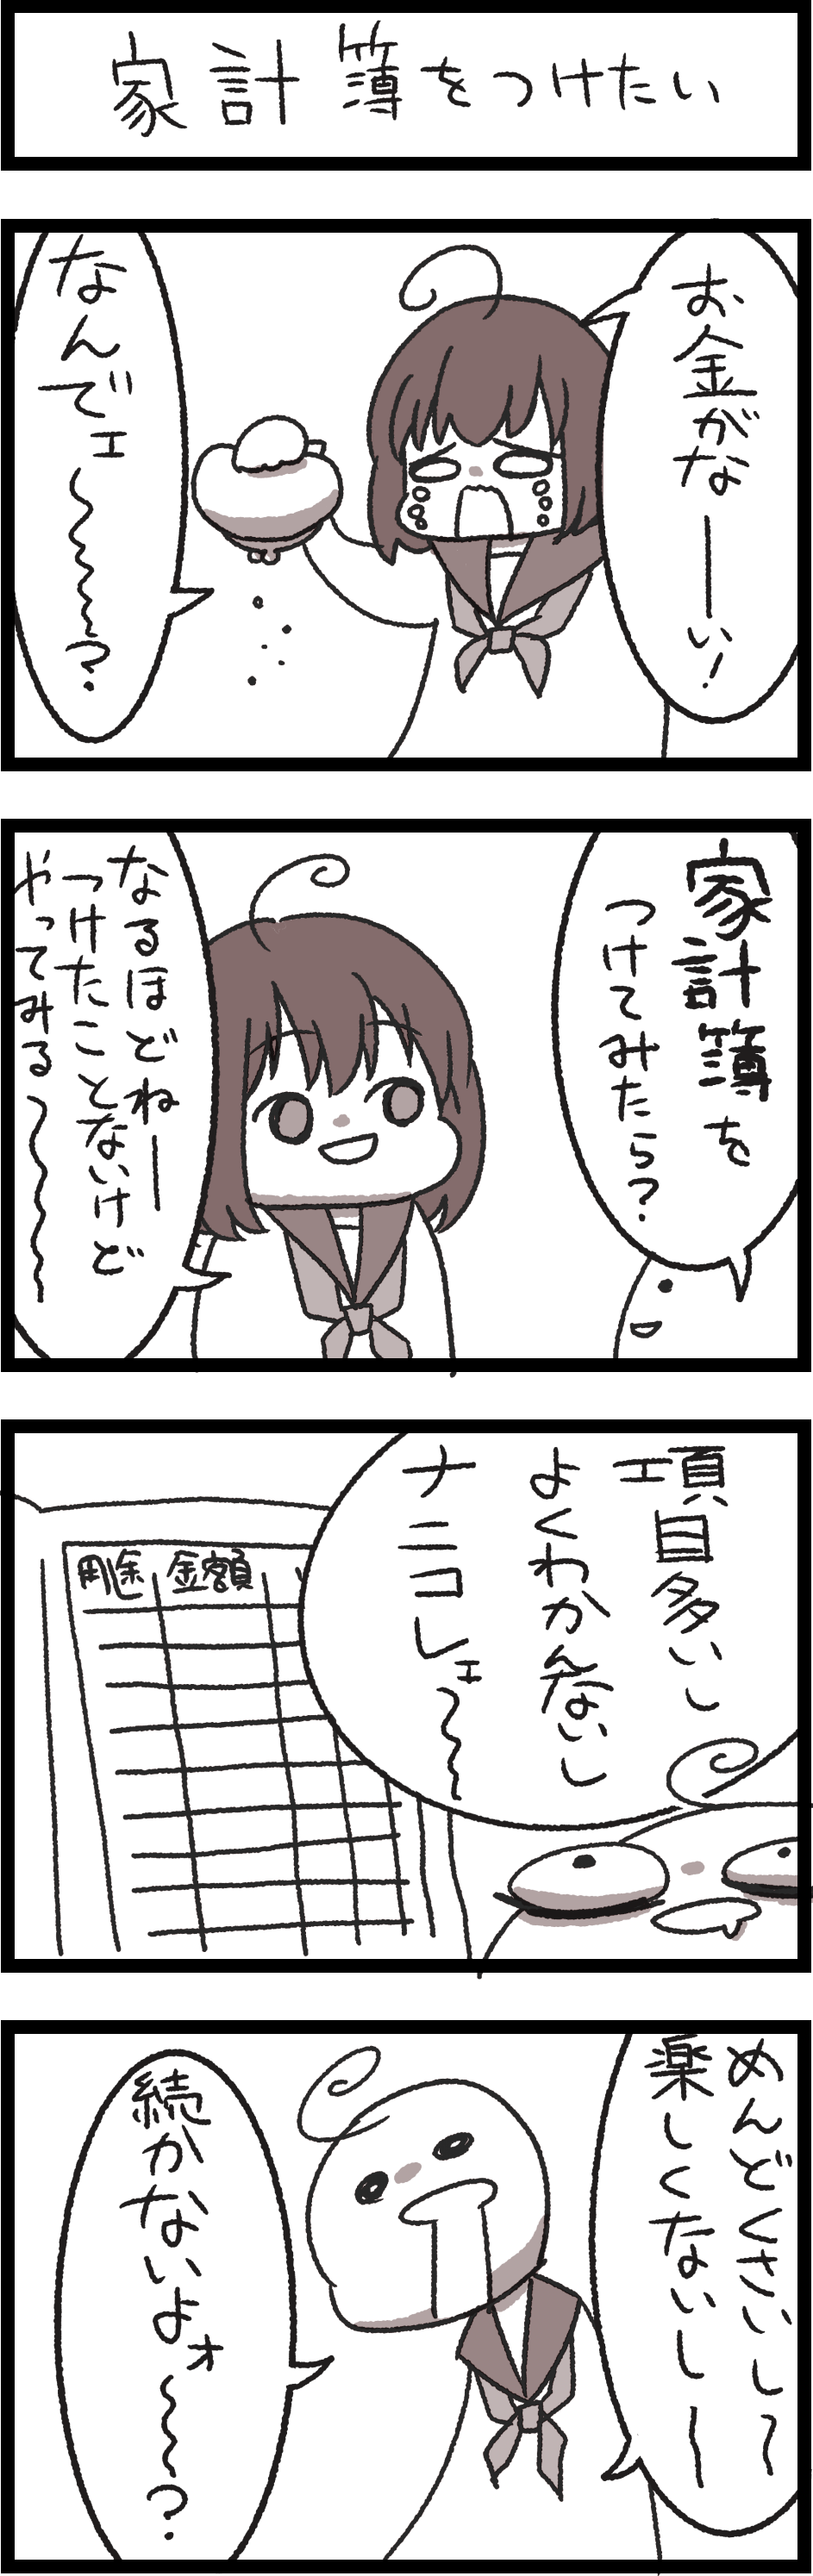 家計簿をつけたい
お金がなーい！
なんでェ〜〜？
家計簿を
つけてみたら？
なるほどねー
つけたことないけど
やってみる〜〜
項目多いし
エ
よくわかんないし
ナニコレェ〜
用途 金額
めんどくさいし〜
楽しくないしー
続かないよォ〜〜？